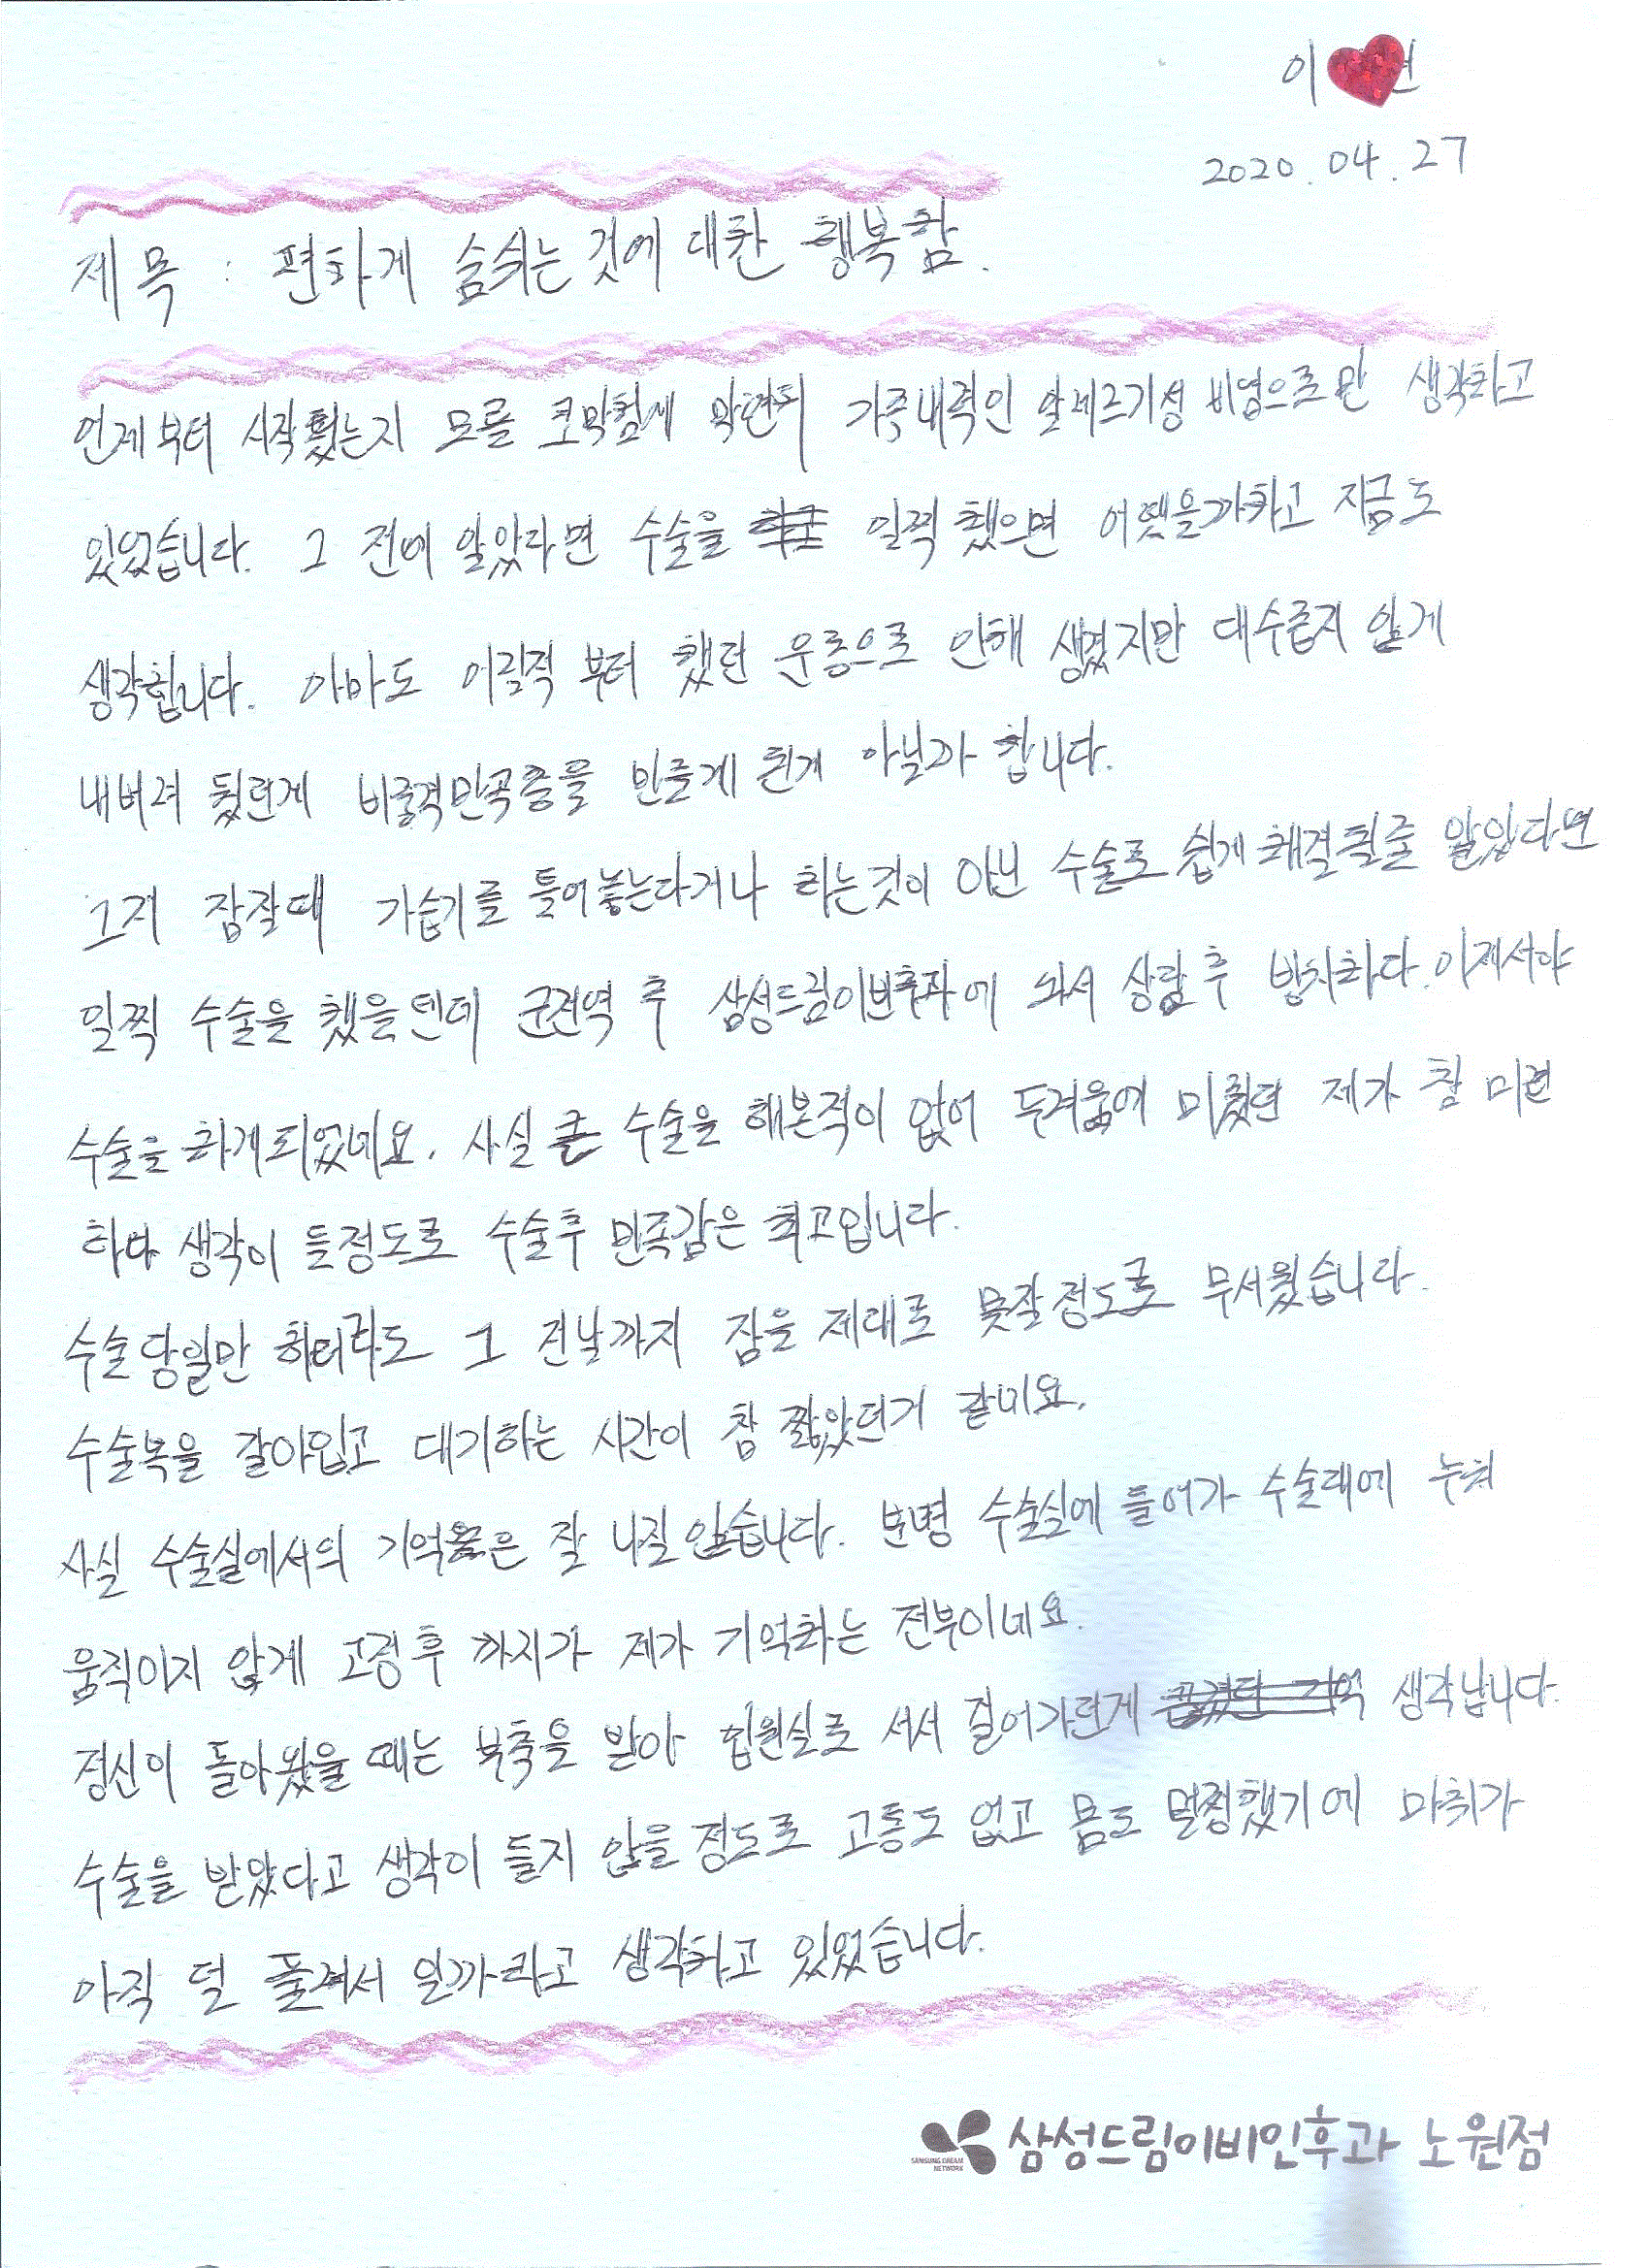 이
2020. 04. 27
제목 : 편하게 숨쉬는 것에 대한 행복함.
언제부터 시작됬는지 모를 코막힘에 막연히 가족내력인 알레르기성 비염으로만 생각하고
있었습니다. 그 전에 알았다면 수술을 일찍 했으면 어땠을까하고 지금도
생각합니다. 아마도 어릴적 부터 했던 운동으로 인해 생겼지만 대수롭지 않게
내버려 뒀던게 비중격만곡증을 만들게 된게 아닐까 합니다.
그저 잠잘때 가습기를 틀어놓는다거나 하는것이 아닌 수술로 쉽게 해결될줄 알았다면
일찍 수술을 했을텐데 군전역 후 삼성드림이비후과에 와서 상담 후 방치하다 이제서야
수술을 하게되었네요. 사실 큰 수술을 해본적이 없어 두려움에 미뤘던 제가 참 미련
하다 생각이 들정도로 수술후 만족감은 최고입니다.
수술 당일만 하더라도 그 전날까지 잠을 제대로 못잘정도로 무서웠습니다.
수술복을 갈아입고 대기하는 시간이 참 짧았던거 같네요.
사실 수술실에서의 기억은 잘 나질 않습니다. 분명 수술실에 들어가 수술대에 누워
움직이지 않게 고정후 까지가 제가 기억하는 전부이네요.
정신이 돌아왔을 때는 부축을 받아 입원실로 서서 걸어가던게 생각납니다.
수술을 받았다고 생각이 들지 않을 정도로 고통도 없고 몸도 멀쩡했기에 마취가
아직 덜 풀려서 일까라고 생각하고 있었습니다.
SAMSUNG DREAM
NETWORK
삼성드림이비인후과 노원점